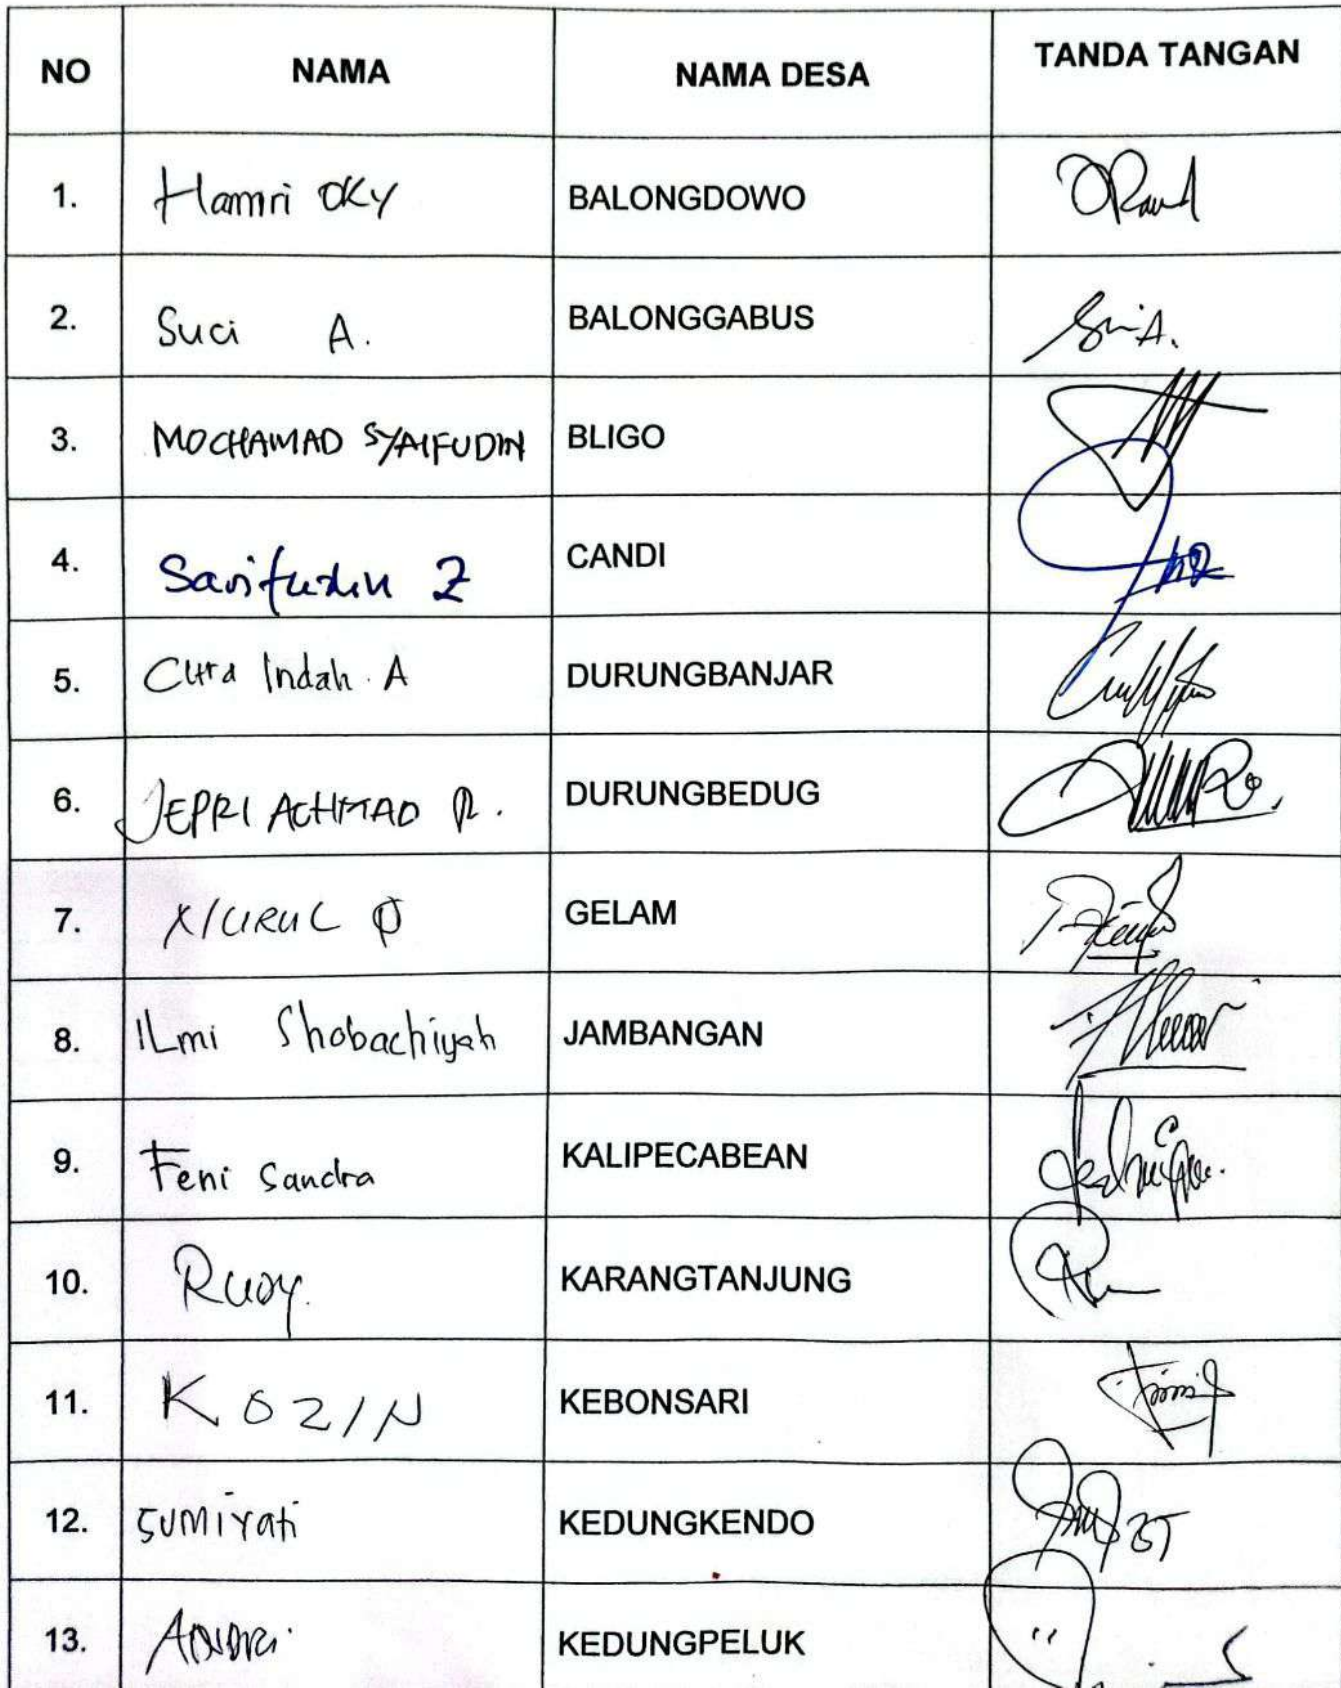 NO NAMA NAMA DESA TANDA TANGAN
1. Hamri OKY BALONGDOWO
2. Suci A. BALONGGABUS
3. MOCHAMAD SYAIFUDIN BLIGO
4. Sarifudin Z CANDI
5. Citra Indah . A DURUNGBANJAR
6. JEPRI ACHMAD R. DURUNGBEDUG
7. GELAM
8. ILmi Shobachiyah JAMBANGAN
9. Feni Sandra KALIPECABEAN
10. Rudy. KARANGTANJUNG
11. KOZIN KEBONSARI
12. SUMIYati KEDUNGKENDO
13. KEDUNGPELUK